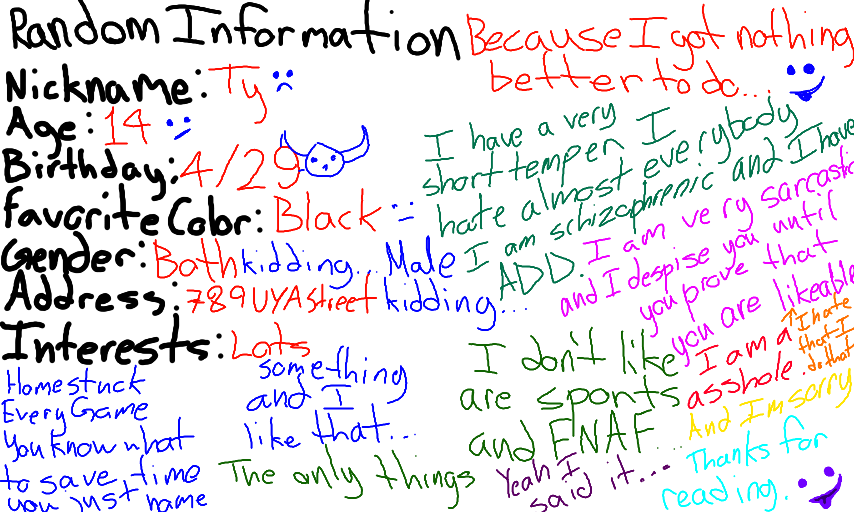 Random Information
Because I got nothing
better to do...
Nickname: Ty
Age: 14
Birthday: 4/29
Favorite Color: Black
Gender: Both kidding... Male
Address: 789 UYA street kidding...
Interests: Lots
Homestuck
Every Game
You know what
to save time
you just name
something
and I
like that...
The only things
I don't like
are sports
and FNAF...
Yeah I
said it...
I have a very
short temper I
hate almost everybody
I am schizophrenic and I have
ADD.
I am very sarcastic
and I despise you until
you prove that
you are likeable
I am a
asshole.
I hate
that I
do that
And I'm sorry
Thanks for
reading.